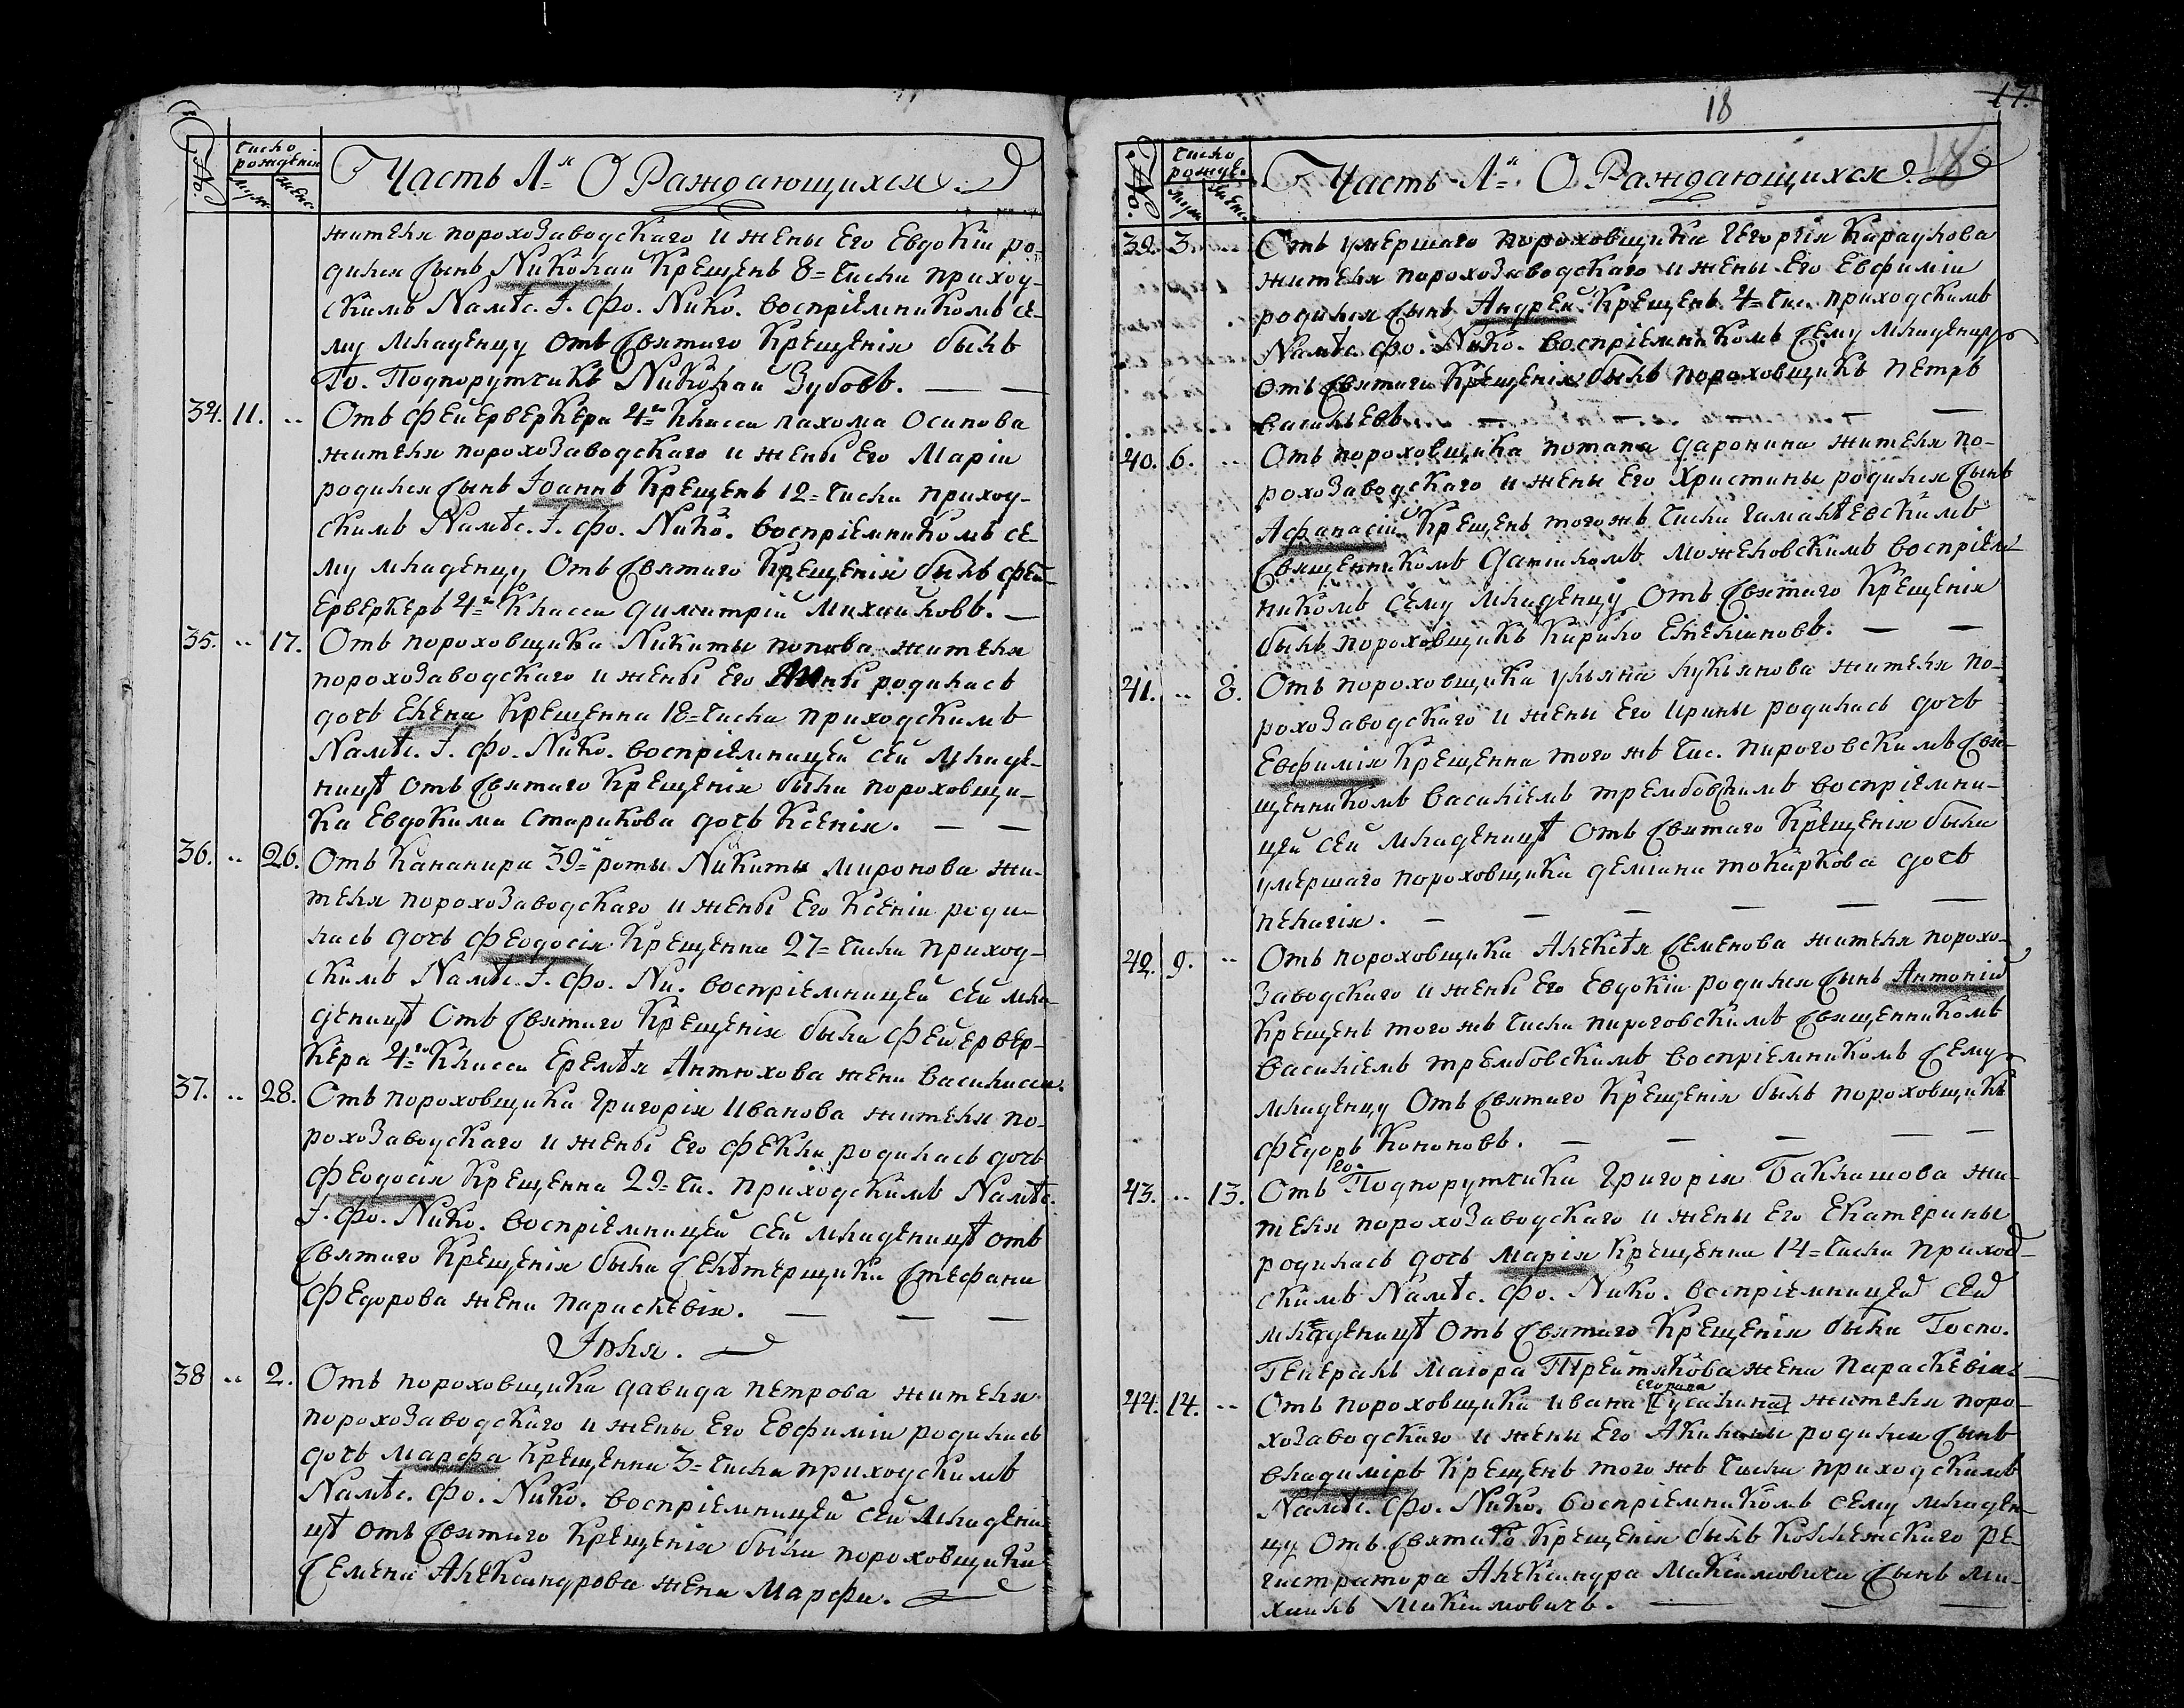 No.
число рожденiя
муж.
женс.
Часть 1=я О Раждающихся.
жителя порохозаводскаго и жены его Евдокiи ро-
дился сынъ Николай крещенъ 8= числа приход-
скимъ Намѣс. I. Фо. Нико. воспрiемникомъ се-
му младенцу отъ святаго крещенiя былъ
Го. Подпорутчикъ Николай Зубовъ. — —
34. 11. .. Отъ Фейерверкера 4го класса пахома осипова
жителя порохозаводскаго и жены его Марiи
родился сынъ Iоаннъ крещенъ 12= числа приход-
скимъ Намѣс. I. Фо. Нико. воспрiемникомъ се-
му младенцу отъ святаго крещенiя былъ фей-
ерверкеръ 4го класса димитрiй михайловъ. —
35. .. 17. Отъ пороховщика Никиты попова жителя
порохозаводскаго и жены его Анны родилась
дочь Елена крещенна 18= числа приходскимъ
Намѣс. I. Фо. Нико. воспрiемницей сей младе-
ницѣ отъ святаго крещенiя была пороховщи-
ка Евдокима старикова дочь ксенiя. — —
36. .. 26. Отъ кананира 39й роты Никиты миронова жи-
теля порохозаводскаго и жены его ксенiи роди-
лась дочь Феодосiя крещенна 27= числа приход-
скимъ Намѣс. I. Фо. Ни. воспрiемницей сей мла-
деницѣ отъ святаго крещенiя была Фейервер-
кера 4го класса Еремѣя Антюхова жена василисса.
37. .. 28. Отъ пороховщика григорiя иванова жителя по-
рохозаводскаго и жены его Феклы родилась дочь
Феодосiя крещенна 29= чи. приходскимъ Намѣс.
I. Фо. Нико. воспрiемницей сей младеницѣ отъ
святаго крещенiя была селѣтерщика стефана
Федорова жена параскевiя. — — —
Iюля.
38 .. 2. Отъ пороховщика давида петрова жителя
порохозаводскаго и жены его Евфимiи родилась
дочь марфа крещенна 3= числа приходскимъ
Намѣс. Фо. Нико. воспрiемницей сей младени-
цѣ отъ святаго крещенiя была пороховщика
семена Александрова жена Марфа.
18
17.
18
No.
число рожде.
муж
женс.
Часть 1=я О Раждающихся.
39. 3. .. Отъ умершаго пороховщика гегоргiя караулова
жителя порохозаводскаго и жены его Евфимiи
родился сынъ Андрей крещенъ 4= чис. приходскимъ
Намѣс. Фо. Нико. воспрiемникомъ сему младенцу
отъ святаго крещенiя былъ пороховщикъ петръ
васильевъ. — — — — —
40. 6. .. Отъ пороховщика потапа даронина жителя по-
рохозаводскаго и жены его христины родился сынъ
Афанасiй крещенъ того жъ числа гамалѣевскимъ
священникомъ можеловскимъ воспрiем-
никомъ сему младенцу отъ святаго крещенiя
былъ пороховщикъ кирило Емелiановъ. — —
41. .. 8. Отъ пороховщика ульяна лукьянова жителя по-
рохозаводскаго и жены его ирины родилась дочь
Евфимiя крещенна того жъ чис. пироговскимъ свя-
щенникомъ василiемъ трембовскимъ воспрiемни-
цей сей младеницѣ отъ святаго крещенiя была
умершаго пороховщика демiана токаркова дочь
пелагiя. — — — — — —
42. 9. .. Отъ пороховщика Алексѣя семенова жителя порохо-
заводскаго и жены его Евдокiи родился сынъ Антонiй
крещенъ того жъ числа пироговскимъ священникомъ
василiемъ трембовскимъ воспрiемникомъ сему
младенцу отъ святаго крещенiя былъ пороховщикъ
Федоръ кононовъ. — — — — —
43. .. 13. Отъ го. Подпорутчика григорiя Баклашова жи-
теля порохозаводскаго и жены его Екатерины
родилась дочь марiя крещенна 14= числа приход-
скимъ Намѣс. Фо. Нико. воспрiемницей сей
младеницѣ отъ святаго крещенiя была Госпо.
Генералъ маiора Третякова жена параскевiя.
44. 14. .. Отъ пороховщика ивана [гусакина] жителя поро-
хозаводскаго и жены его Акилины родился сынъ
владимiръ крещенъ того жъ числа приходскимъ
Намѣс. Фо. Нико. воспрiемникомъ сему младен-
цу отъ святаго крещенiя былъ коллежскаго ре-
гистратора Александра Максимовича сынъ ми-
хаилъ максимовичъ. — — —